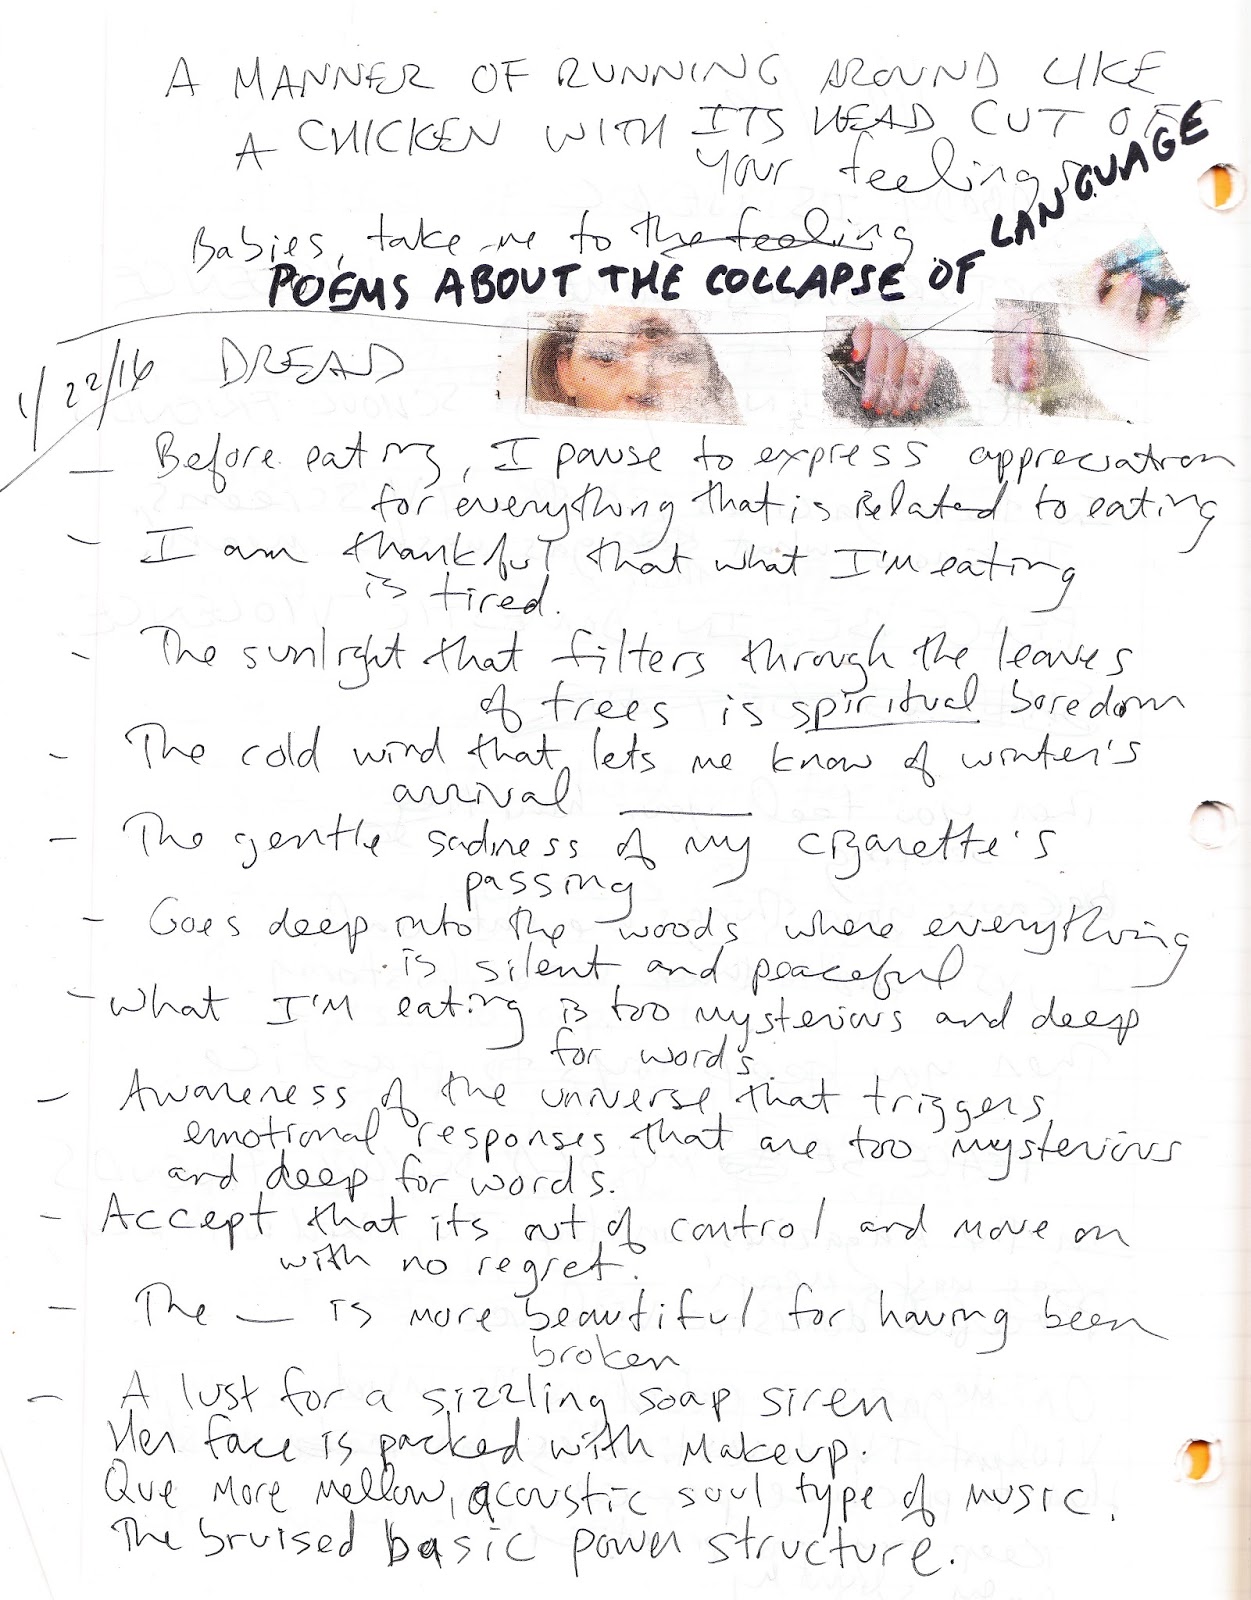 A MANNER OF RUNNING AROUND LIKE
A CHICKEN WITH ITS HEAD CUT OFF
your feelings
Babies, take me to the feeling
POEMS ABOUT THE COLLAPSE OF LANGUAGE
1/22/16 DREAD
- Before eating, I pause to express appreciation
for everything that is Related to eating
- I am thankful that what I'm eating
is tired.
- The sunlight that filters through the leaves
of trees is spiritual boredom
- The cold wind that lets me know of winter's
arrival ___
- The gentle sadness of my cigarette's
passing
- Goes deep into the woods where everything
is silent and peaceful
- What I'm eating is too mysterious and deep
for words
- Awareness of the universe that triggers
emotional responses that are too mysterious
and deep for words.
- Accept that its out of control and move on
with no regret.
- The __ is more beautiful for having been
broken
- A lust for a sizzling soap siren
Her face is packed with makeup.
Que more mellow, acoustic soul type of music.
The bruised basic power structure.